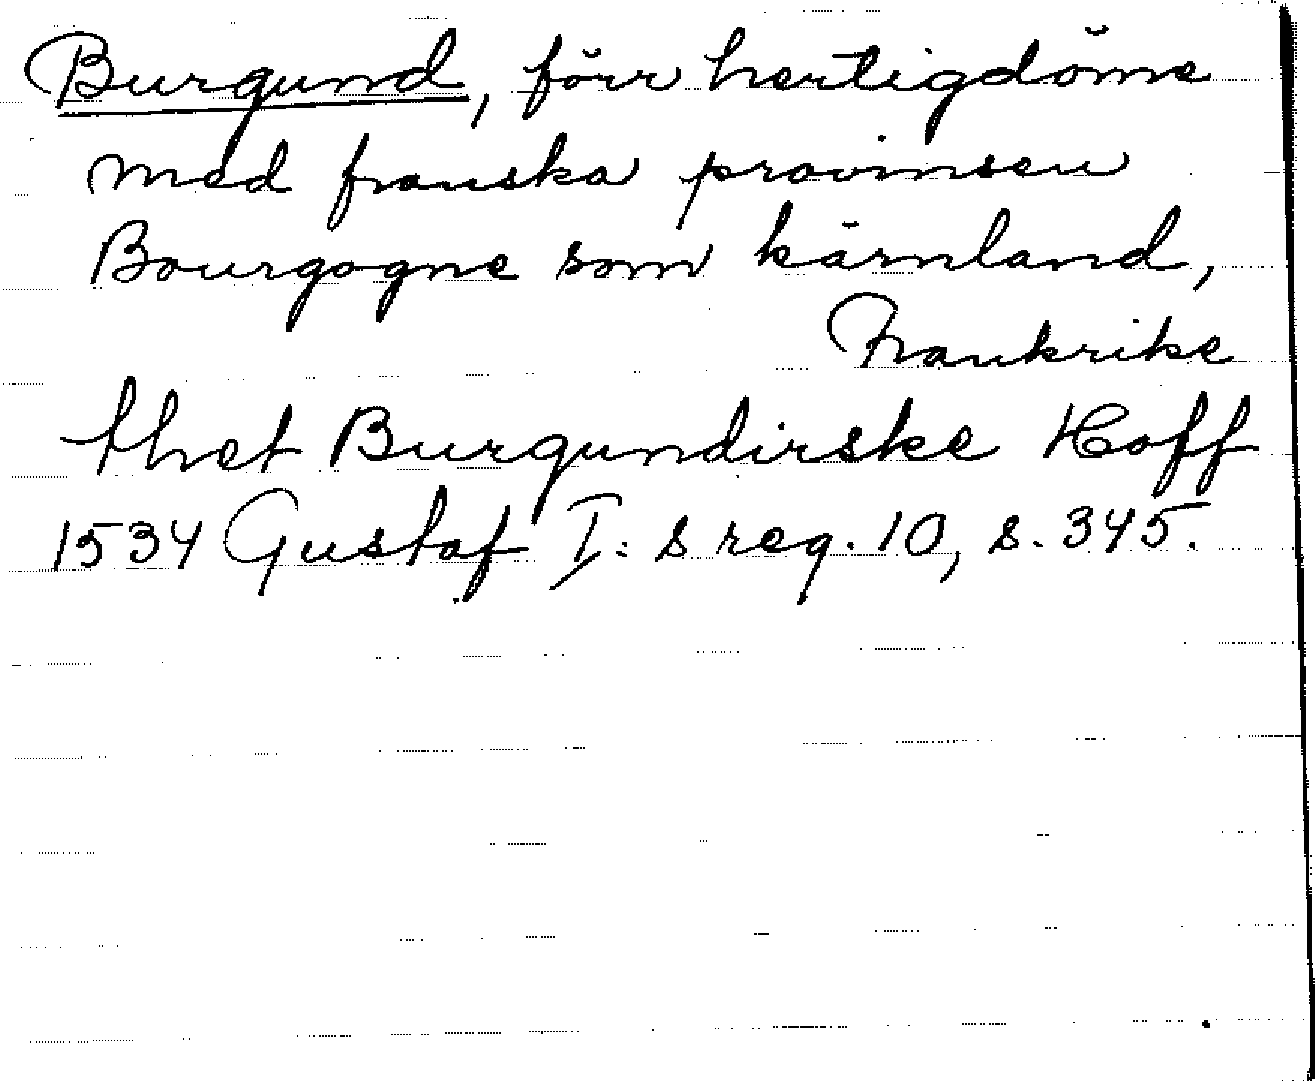 Burgund, förr hertigdöme
med franska provinsen
Bourgogne som kärnland,
Frankrike
thet Burgundirske Hoff
1534 Gustaf I:s reg. 10, s. 345.